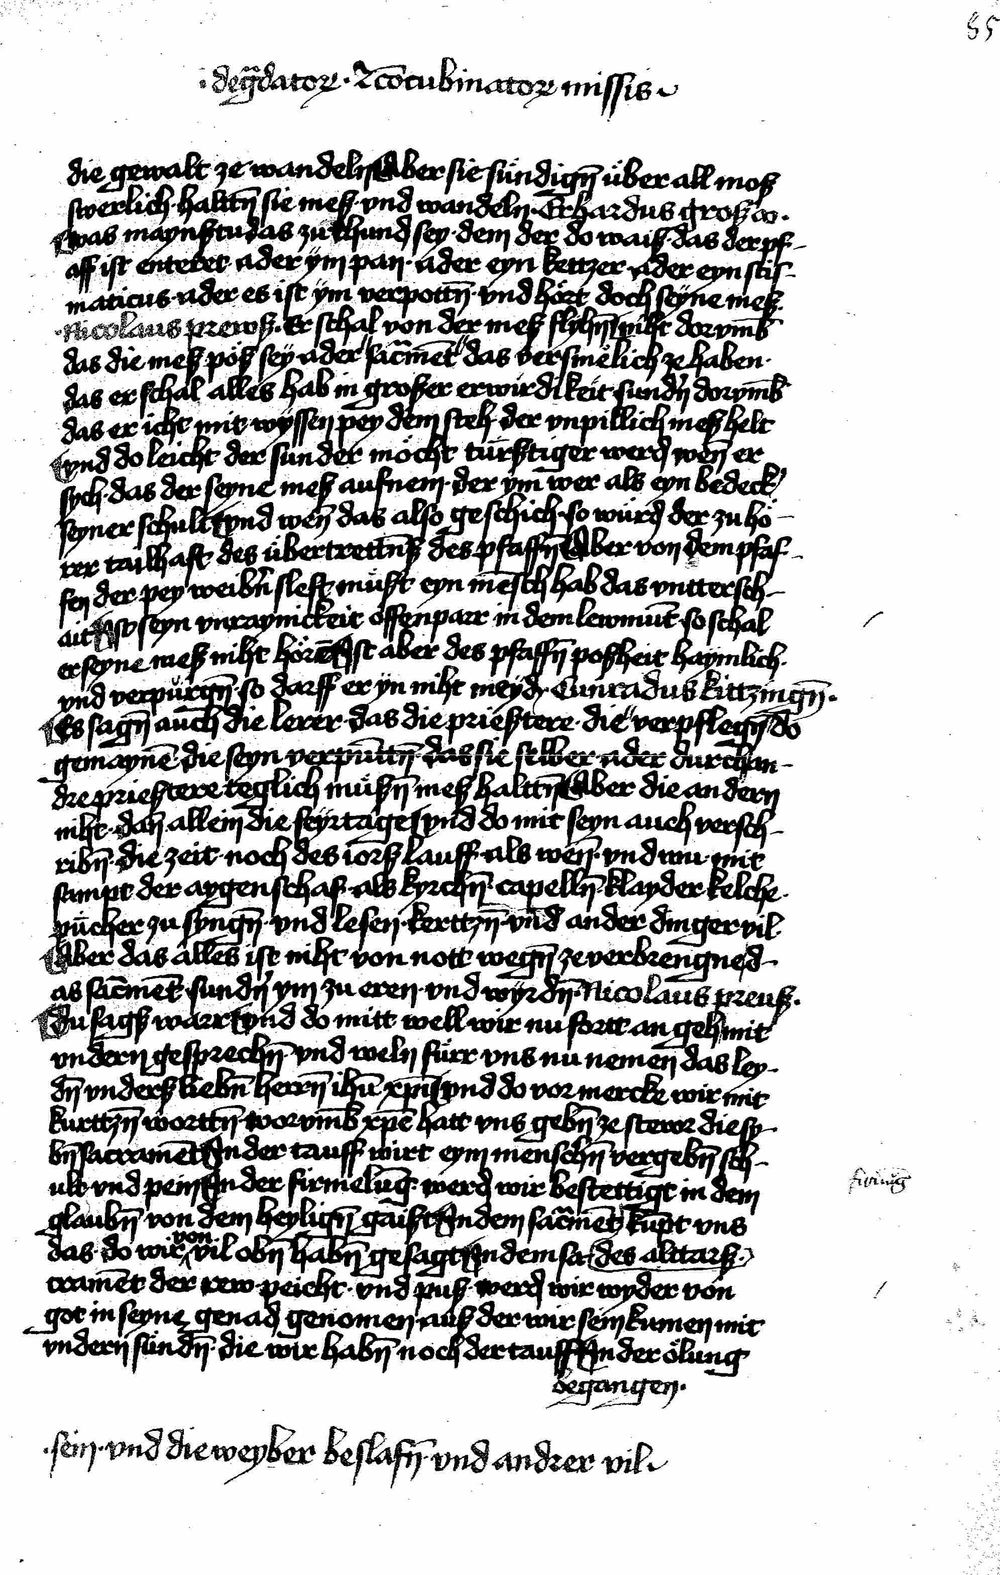 85
· deg̃dator · ⁊ cōcubinator missis ·
die gewalt ze wandelṅ Aber sie sündigñ über all mosz
swerlich halttñ sie mesz vnd wandeln · Erhardus grosz
was maynstu das zu thund sey dem der do waisz das der pf-
aff ist enteret ader ym pan · ader eyn kettzer ader eyn scis-
maticus · ader es ist ym verpottñ · vnd hört doch seyne mesz
· Nicolaus prewsz · Er schal von der mesz flyhñ niht dorvmb
das die mesz pösz sey · ader sac̃mēt das versmelich ze haben ·
das er schal alles hab in groszer erwirdikeit · sundñ dorvmb
das er icht mit wyssen pey dem steh der vnpillich mesz helt
vnd do leicht der sunder möcht türstiger werd wen̄ er
sych das der seyne mesz aufnem · der ym wer als eyn bedeck
seyner schult vnd wen̄ das also geschich · so würd der zu hö-
rer tailhaft des übertrettñsz des pfaffñ Aber von dem pfaf-
fen der pey weibñ sleft müst eyn mēsch hab das vnttersch-
ait Ist seyn vnraynickeit offenparr in dem lewmūt · so schal
er seyne mesz niht hörē Ist aber des pfaffñ poszheit haymlich ·
vnd verpürgñ · so darff er yn niht meyd · Cunradus kittzingñ ·
Es sagñ auch die lerer · das die priestere · die verpflegñ do
gemaynē die seyn verpūttñ das sie selber ader durch an-
dre priestere teglich müszñ mesz halttñ Aber die andern
niht · dan̄ allein die feyrtage vnd do mit seyn auch versch-
ribñ · die zeit · noch des iorsz lauff · als wen̄ · vnd wu · mit
sampt der aygenschaf · als kyrchñ · capellñ · klayder kelche ·
pücher zu syngñ · vnd lesen · kerttzñ vnd ander dinger vil
Aber das alles ist niht von nott wegñ ze verbrengñ d-
as sac̃mēt · sundñ ym zu eren vnd wyrdñ · Nicolaus preusz ·
Du sagsz warr vnd do mitt well wir nu fortt an geh mit
vndern gesprechñ · vnd weln fürr vns nu nemen das ley-
dñ vndersz liebñ herrñ ihū xp̄i vnd do vor mercke wir mit
kurttzñ worttñ · worvmb xp̄e hatt vns gebñ ze stewr die sy-
bñ sacramēt In der tauff wirt eym menschñ vergebñ sch-
ult vnd pein In der firmelūg · werd wir bestettigt in dem
glaubñ von dem heyligñ gaist In dem sac̃mēt kūpt vns
das · do wir von vil obñ habñ gesagt In dem sa- des alttarsz ·
cramēt der rew · peicht · vnd pusz · werd wir wyder von
got in seyne genad genomen · ausz der wir sein kumen mit
vndern sündñ · die wir habñ noch der tauff In der ölung
begangen ·
firmūg
· sein · vnd die weyber beslafñ vnd andrer vil ·